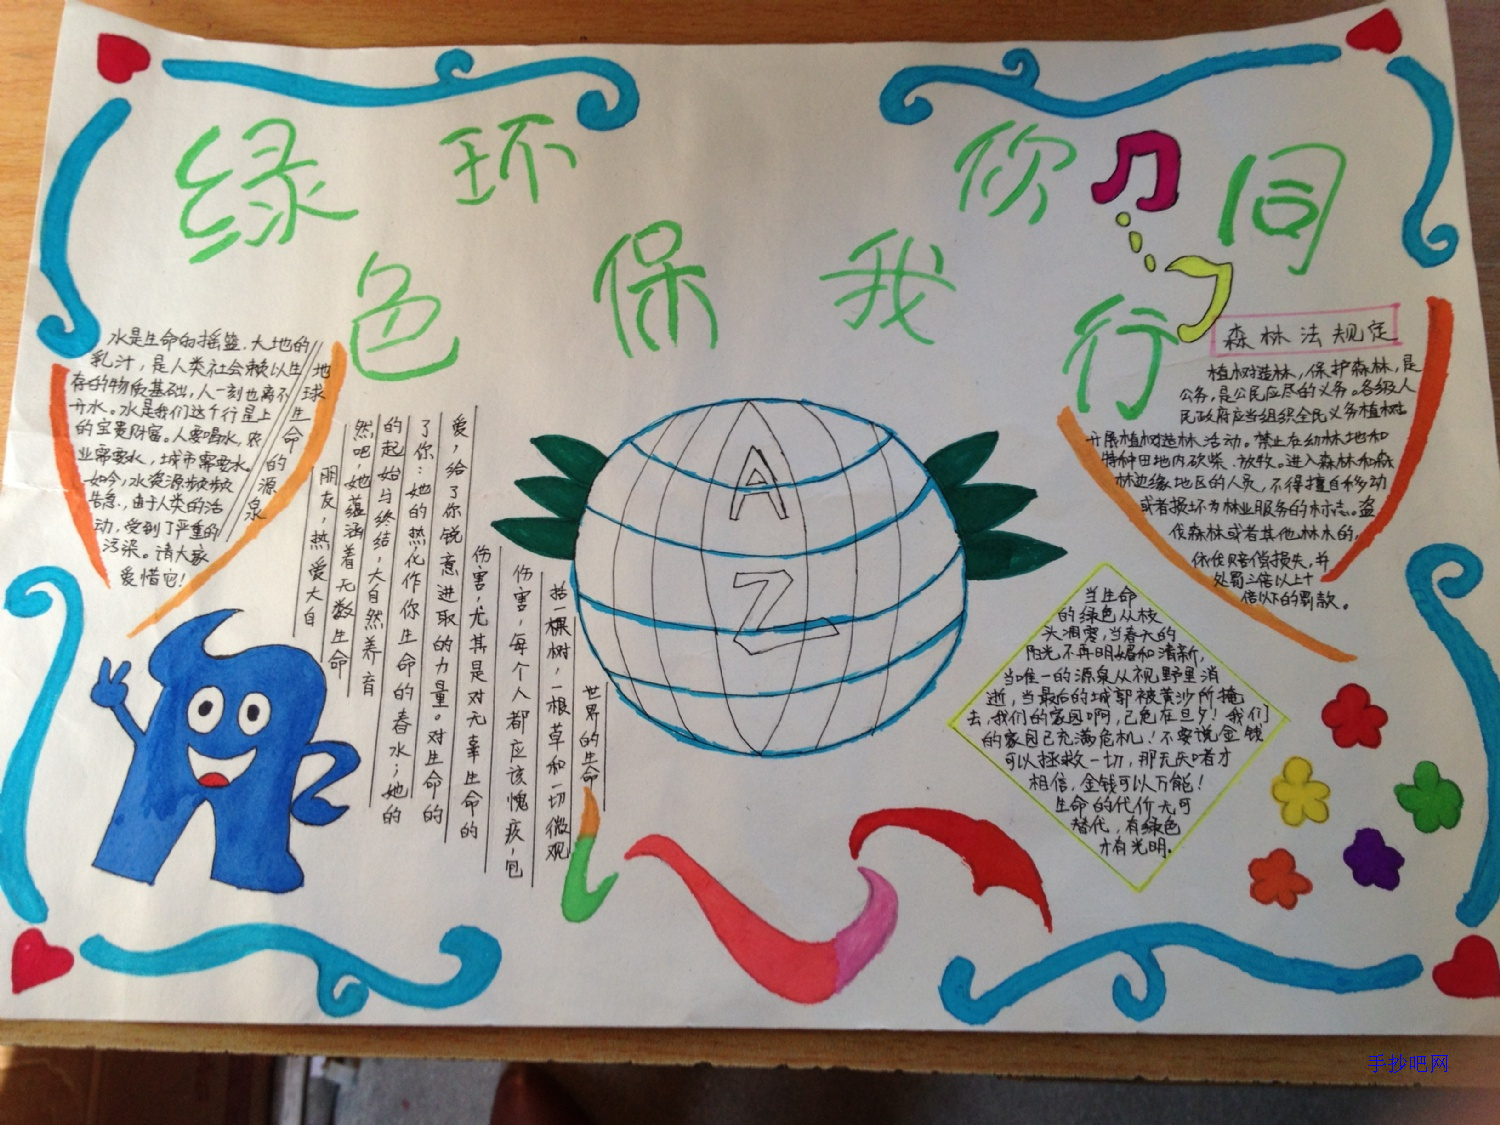 绿色环保我你同行
水是生命的摇篮，大地的
乳汁，是人类社会赖以生
存的物质基础，人一刻也离不
开水。水是我们这个行星上
的宝贵财富。人要喝水，农
业需要水，城市需要水。
如今，水资源频频
告急，由于人类的活
动，受到了严重的
污染。请大家
爱惜它！
地球生命的源泉
朋友，热爱大自
然吧，她蕴涵着无数生命
的起始与终结，大自然养育
了你：她的热化作你生命的春水；她的
爱，给了你锐意进取的力量。对生命的
伤害，尤其是对无辜生命的
伤害，每个人都应该愧疚，包
括一棵树，一根草和一切微观
世界的生命
A
Z
森林法规定
植树造林，保护森林，是
公务，是公民应尽的义务。各级人
民政府应当组织全民义务植树
开展植树造林活动。禁止在幼林地和
特种田地内砍柴、放牧。进入森林和森
林边缘地区的人员，不得擅自移动
或者损坏为林业服务的标志。盗
伐森林或者其他林木的，
依法赔偿损失，并
处罚三倍以上十
倍以下的罚款。
当生命
的绿色从枝
头凋零，当春天的
阳光不再明媚和清新，
当唯一的源泉从视野里消
逝，当最后的城郭被黄沙所掩
去，我们的家园啊，已危在旦夕！我们
的家园已充满危机！不要说金钱
可以拯救一切，那无知者才
相信，金钱可以万能！
生命的代价无可
替代，有绿色
才有光明。
手抄吧网